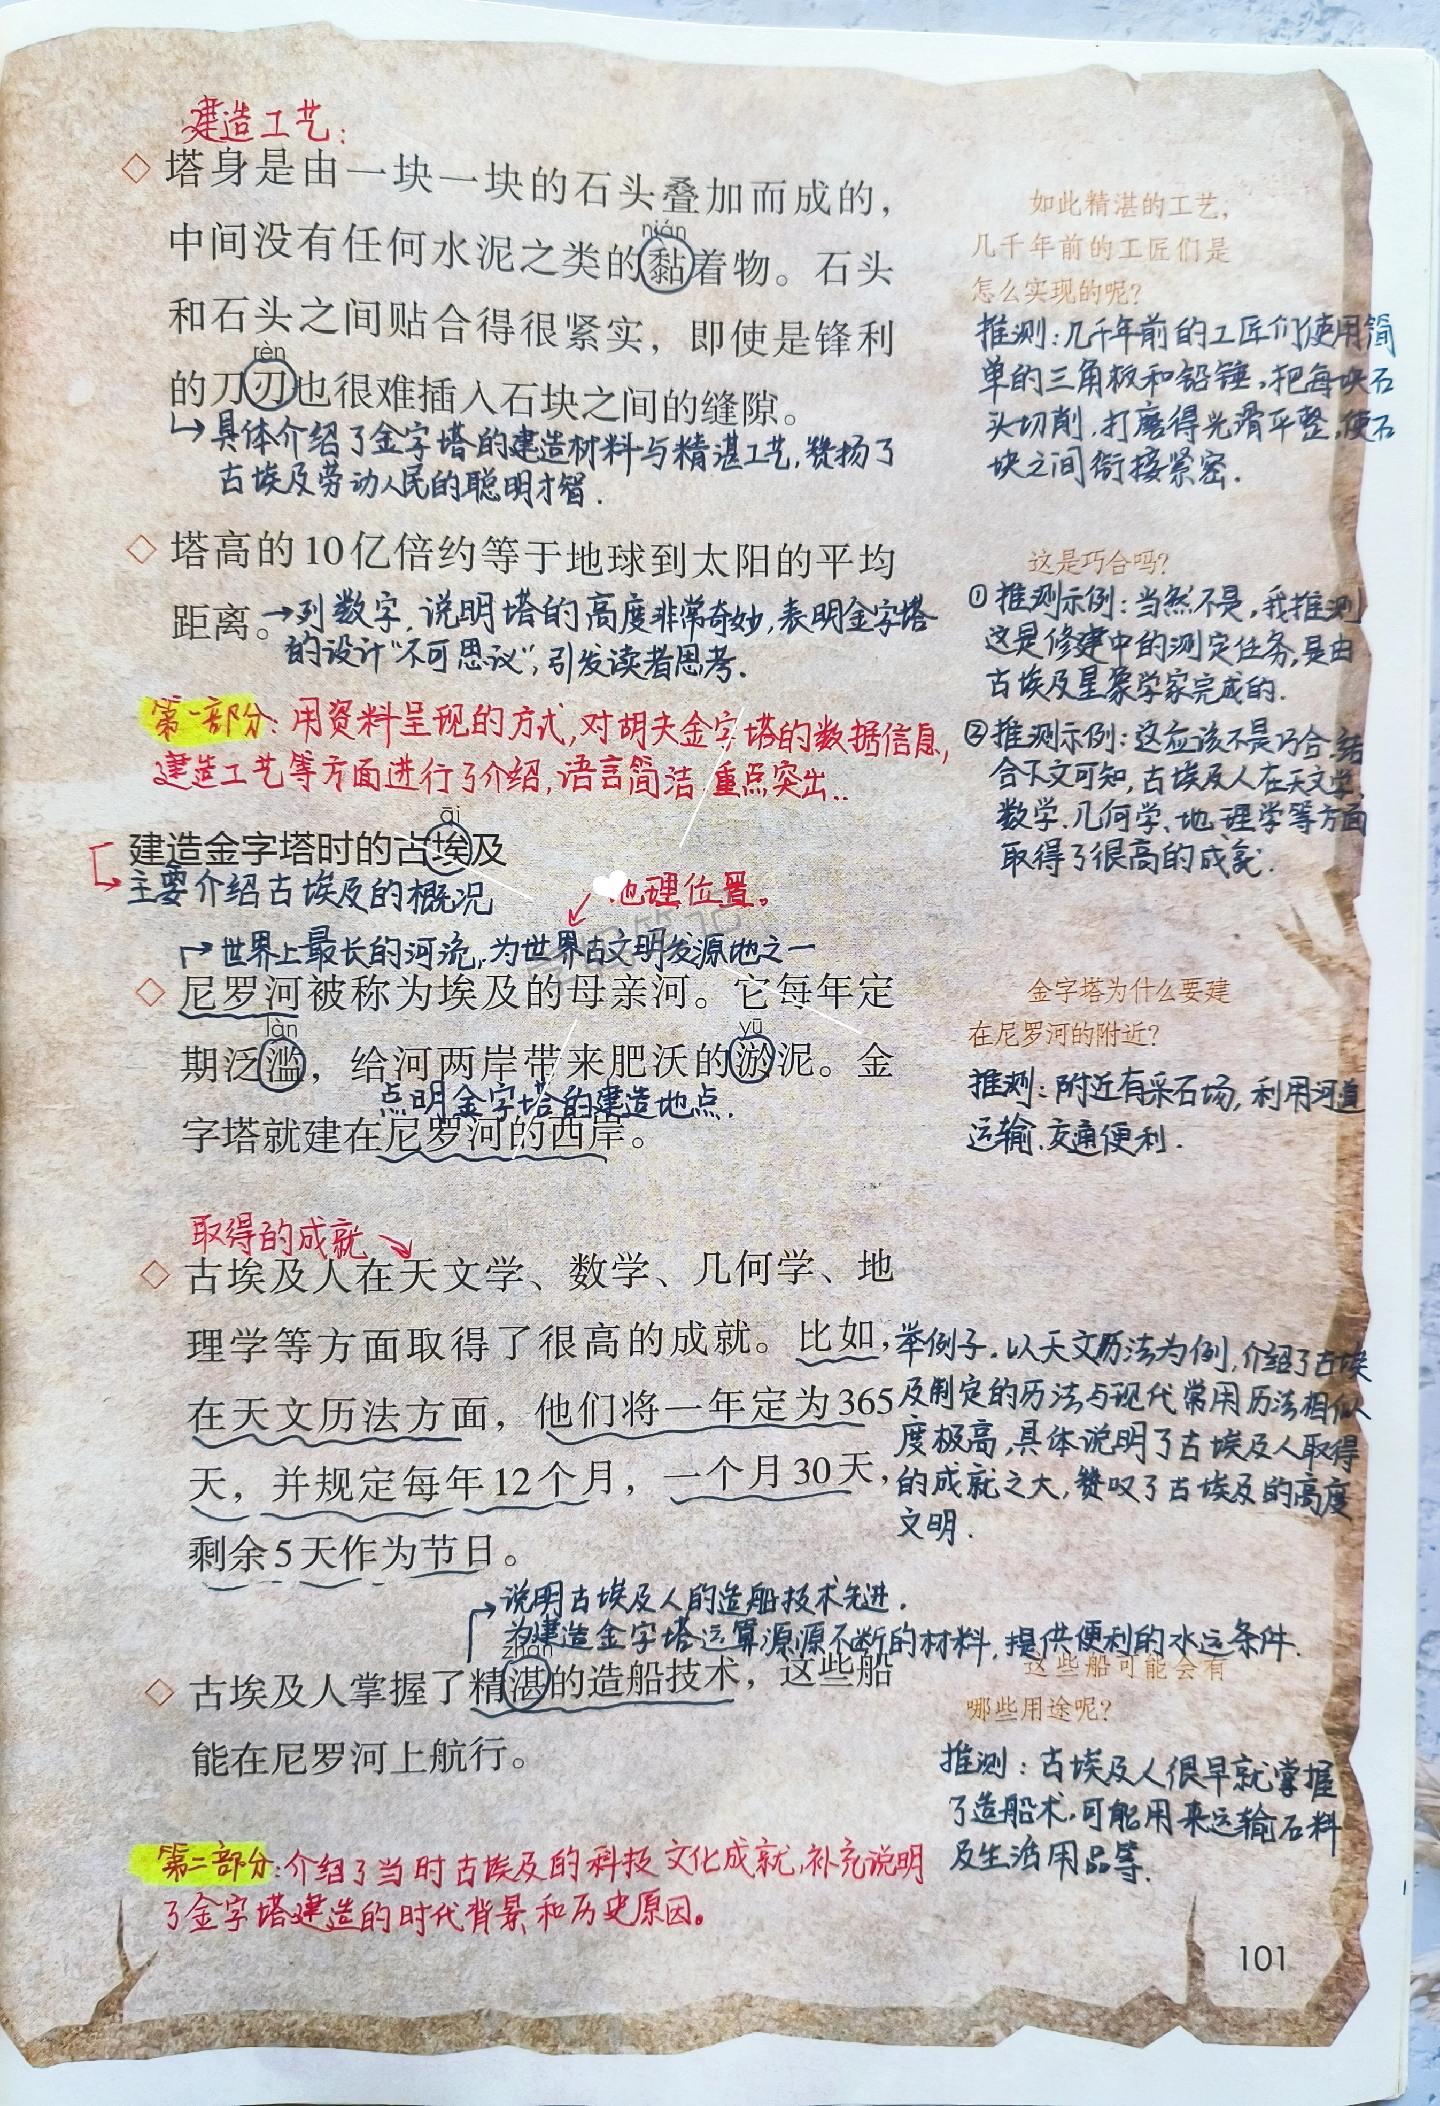 建造工艺:
◇ 塔身是由一块一块的石头叠加而成的，
nián
中间没有任何水泥之类的黏着物。石头
和石头之间贴合得很紧实，即使是锋利
rèn
的刀刃也很难插入石块之间的缝隙。
具体介绍了金字塔的建造材料与精湛工艺，赞扬了
古埃及劳动人民的聪明才智.
如此精湛的工艺，
几千年前的工匠们是
怎么实现的呢？
推测：几千年前的工匠们使用简
单的三角板和铅锤，把每块石
头切削，打磨得光滑平整，使石
块之间衔接紧密.
◇ 塔高的10亿倍约等于地球到太阳的平均
距离。→列数字，说明塔的高度非常奇妙，表明金字塔
的设计“不可思议”，引发读者思考.
这是巧合吗？
①推测示例：当然不是，我推测
这是修建中的测定任务，是由
古埃及星象学家完成的.
②推测示例：这应该不是巧合，结
合下文可知，古埃及人在天文学、
数学、几何学、地理学等方面
取得了很高的成就.
第一部分：用资料呈现的方式，对胡夫金字塔的数据信息，
建造工艺等方面进行了介绍，语言简洁，重点突出..
āi
建造金字塔时的古埃及
主要介绍古埃及的概况
地理位置。
世界上最长的河流，为世界古文明发源地之一
◇ 尼罗河被称为埃及的母亲河。它每年定
làn yū
期泛滥，给河两岸带来肥沃的淤泥。金
点明金字塔的建造地点.
字塔就建在尼罗河的西岸。
金字塔为什么要建
在尼罗河的附近？
推测：附近有采石场，利用河道
运输，交通便利.
取得的成就
◇ 古埃及人在天文学、数学、几何学、地
理学等方面取得了很高的成就。比如，
在天文历法方面，他们将一年定为365
天，并规定每年12个月，一个月30天，
剩余5天作为节日。
举例子，以天文历法为例，介绍了古埃
及制定的历法与现代常用历法相似
度极高，具体说明了古埃及人取得
的成就之大，赞叹了古埃及的高度
文明.
说明古埃及人的造船技术先进.
为建造金字塔运算源源不断的材料，提供便利的水运条件.
zhàn
◇ 古埃及人掌握了精湛的造船技术，这些船
能在尼罗河上航行。
这些船可能会有
哪些用途呢？
推测：古埃及人很早就掌握
了造船术，可能用来运输石料
及生活用品等.
第二部分：介绍了当时古埃及的科技文化成就，补充说明
了金字塔建造的时代背景和历史原因。
101